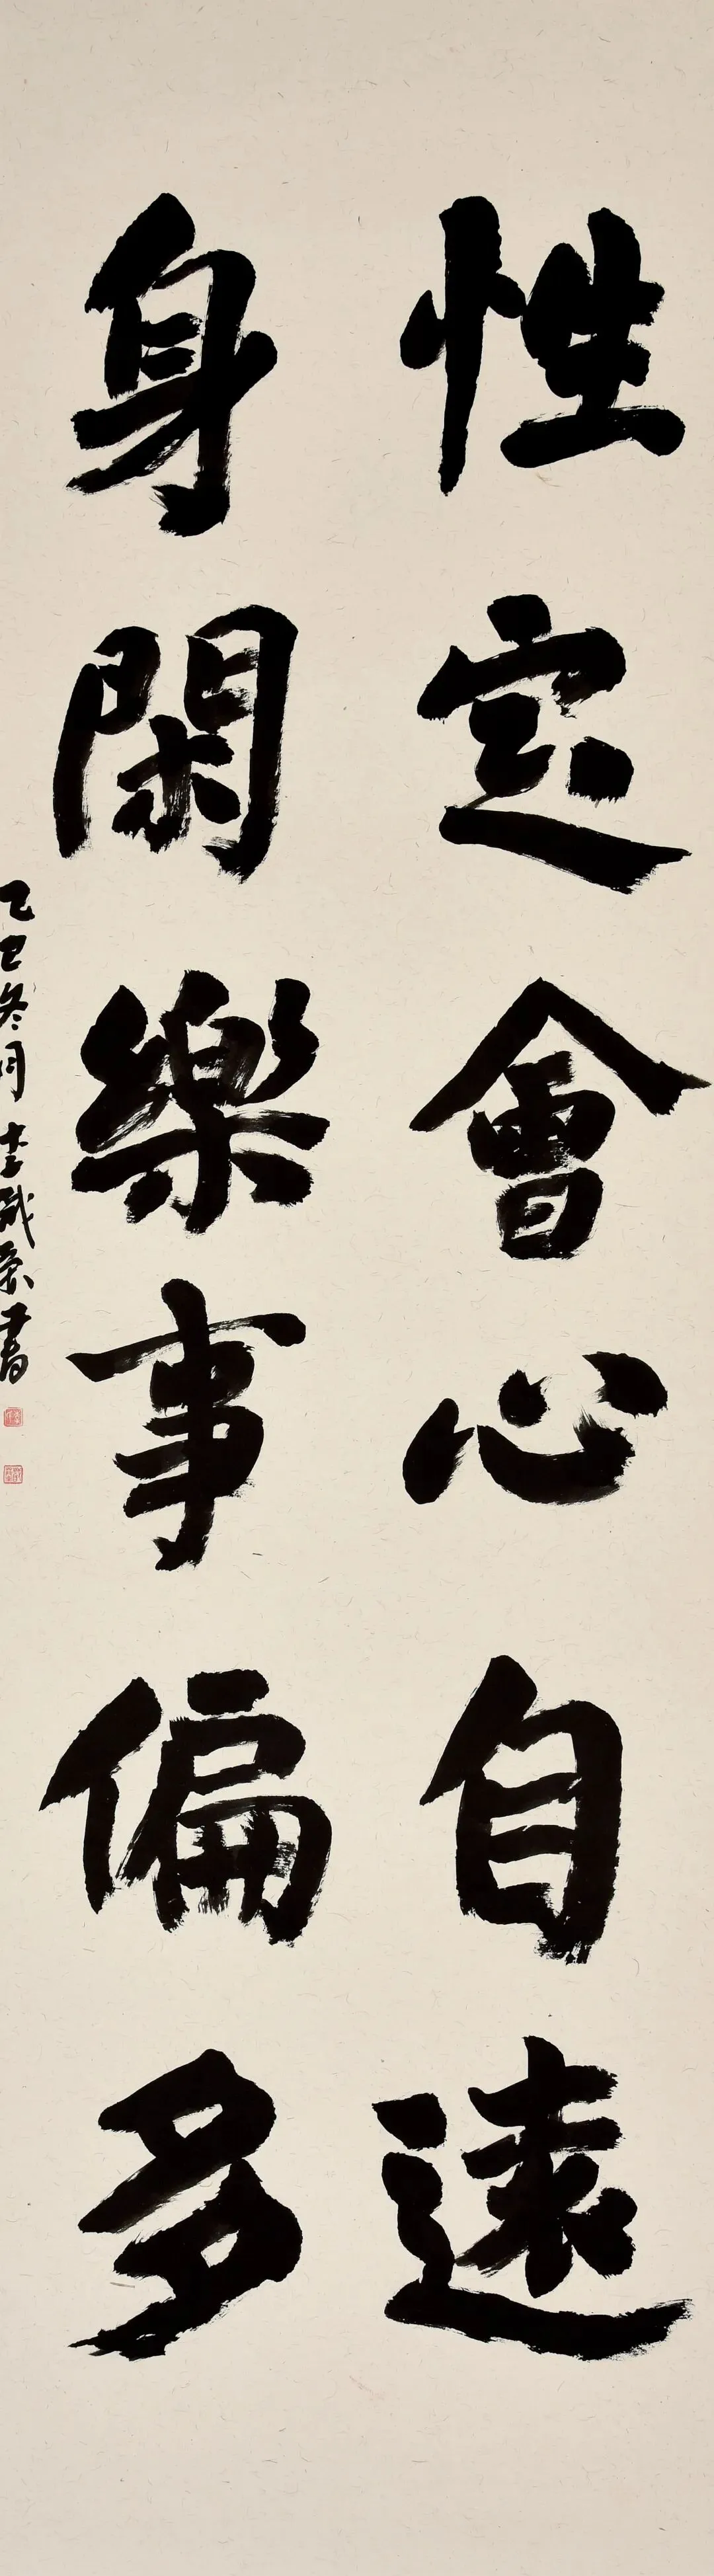 性定會心自遠
身閑樂事偏多
乙巳冬月李成泉書